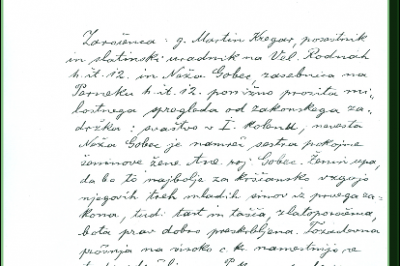 Zaročenca: g. Martin Kregar, posestnik
in slatinski uradnik na Vel. Rodnah
h. št. 12. in Neža Gobec, zasebnica na
h. št. 12. ponižno prosita mi-
lostnega spregleda od zakonskega za-
držka: svaštvo v I. kolenu, nevesta
Neža Gobec je namreč sestra pokojne
ženinove žene Ane roj. Gobec. Ženin upa,
da bo to najbolje za krščansko vzgojo
njegovih treh mladih sinov iz prvega za-
kona, tudi tast in tašča, zlatoporočena,
bota prav dobro preskrbljena. Tozadevna
prošnja na visoko c. k. namestnijo se